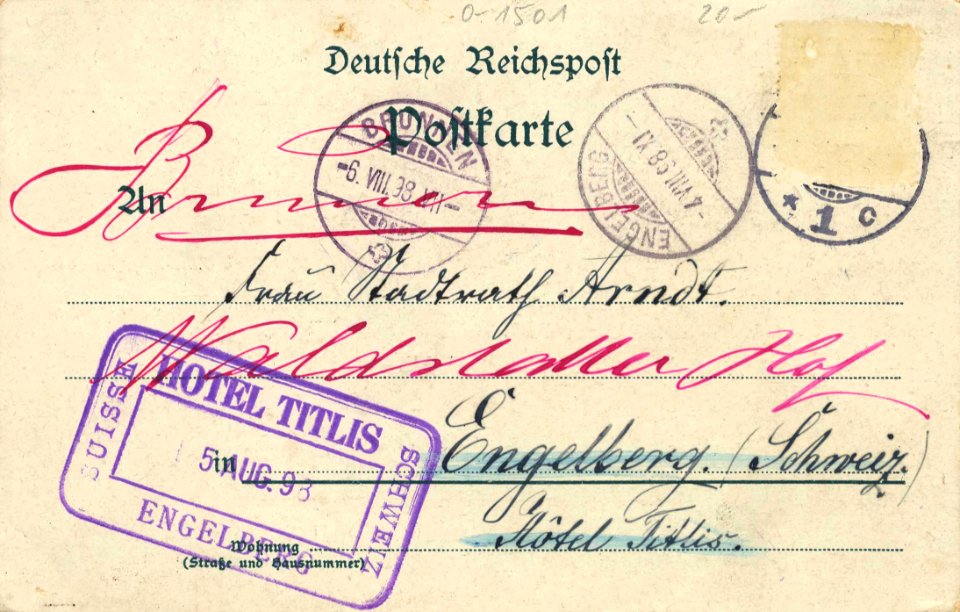 0-1501 20-
Deutsche Reichspost
Postkarte
BRUNNEN
-6. VIII. 98. XII-
ENGELBERG
* 1 c
An
Brunnen
Frau Stadtrath Arndt.
Waldstätter Hof
HOTEL TITLIS
SUISSE
SCHWEIZ
5 AUG. 98
ENGELBERG
in
Engelberg. (Schweiz.)
Hôtel Titlis.
Wohnung
(Straße und Hausnummer)